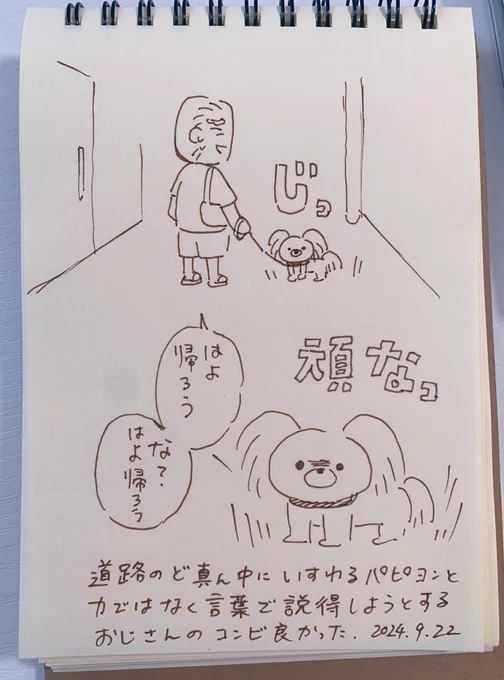 じっ
頑なっ
はよ
帰ろう
な?
はよ帰ろう
道路のど真ん中にいすわるパピヨンと
力ではなく言葉で説得しようとする
おじさんのコンビ良かった. 2024.9.22